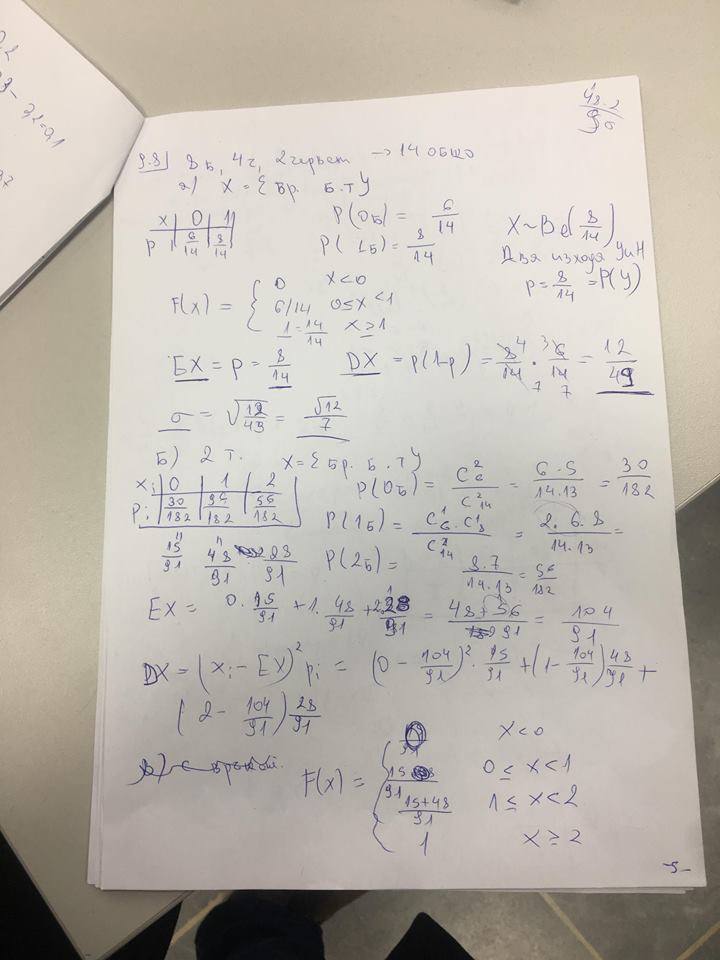 9.8) 8 б, 4 ч, 2 червени → 14 общо
а) X = { бр. б. т }
x | 0 | 1
p | 6/14 | 8/14
P(0б) = 6/14
P(1б) = 8/14
X ~ Be(8/14)
Два изхода У и Н
p = 8/14 = P(У)
F(x) = { 0 x<0
6/14 0≤x<1
1 = 14/14 x≥1
EX = p = 8/14 DX = p(1-p) = 8/14 · 6/14 = 12/49
σ = √12/49 = √12/7
Б) 2 т. X = { бр. б. т }
xi | 0 | 1 | 2
pi | 30/182 | 96/182 | 56/182
15/91 48/91 28/91
P(0б) = C₆²/C₁₄² = 6.5/14.13 = 30/182
P(1б) = C₆¹.C₈¹/C₁₄² = 2.6.8/14.13 =
P(2б) = 8.7/14.13 = 56/182
EX = 0. 15/91 + 1. 48/91 + 2. 28/91 = 48+56/91 = 104/91
DX = (xi - EX)² pi = (0 - 104/91)². 15/91 + (1 - 104/91) 48/91 +
(2 - 104/91) 28/91
F(x) = { x<0
15/91 0≤x<1
15+48/91 1≤x<2
1 x≥2
-5-